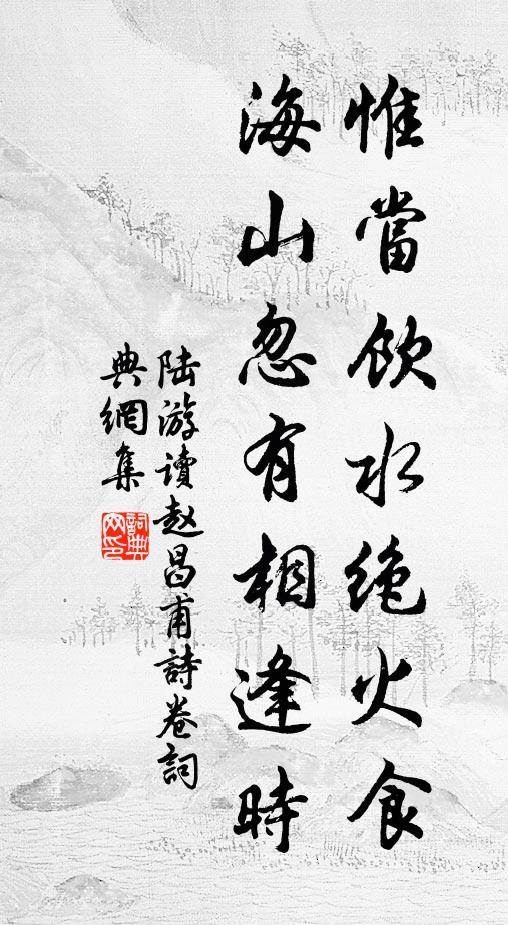 惟當飲水絶火食
海山忽有相逢時
陆游讀赵昌甫詩卷詞
典網集
詞典
网印